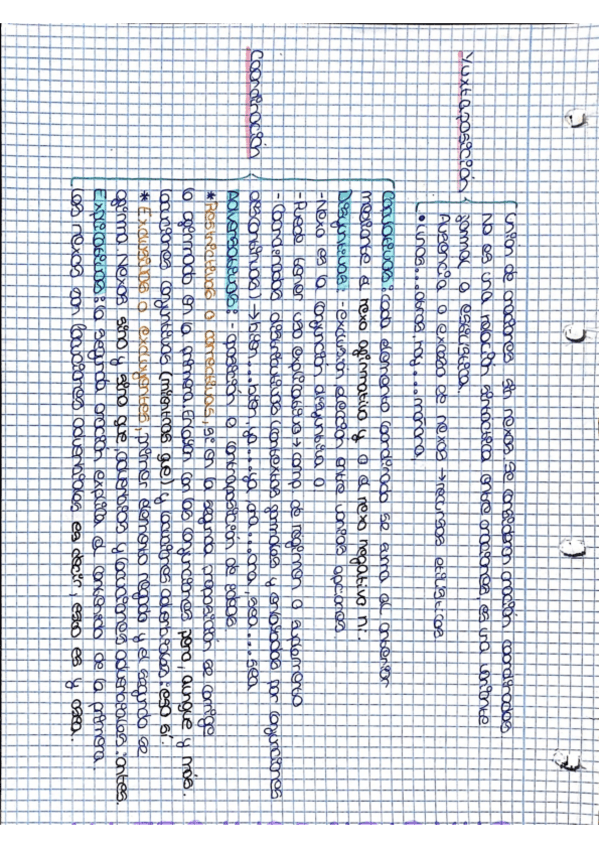 Yuxtaposición
Unión de oraciones sin nexos. Se consideran oración coordinadas
No es una relación sintáctica entre oraciones, es una variante
formal o estilística.
Ausencia o exceso de nexos → recursos estilísticos
• unas... otras, hoy... mañana,
Coordinación
Copulativas: cada elemento coordinado se suma al anterior
mediante el nexo afirmativo y o el nexo negativo ni.
Disyuntivas: - exclusión elección entre varias opciones.
- Nexo es la conjunción disyuntiva o
- Puede tener uso explicativo → comp. de régimen o suplemento
- Coordinadas distributivas (contextos formales y enlazadas por conjunciones
discontinuas) → bien... bien, ya... ya, ora... ora, sea... sea
Adversativas: - oposición o contraposición de ideas
* Restrictivas o correctivas, si en la segunda proposición se corrige
lo afirmado en la primera. Enlazan con las conjunciones pero, aunque y mas.
Locuciones conjuntivas (mientras que) y locuciones adverbiales: eso sí.
* Exclusivas o excluyentes, primer elemento negado y el segundo se
afirma. Nexos sino y sino que, adverbios y locuciones adverbiales: antes.
Explicativas: la segunda oración explica el contenido de la primera.
Los nexos son locuciones adverbiales es decir, esto es y osea.